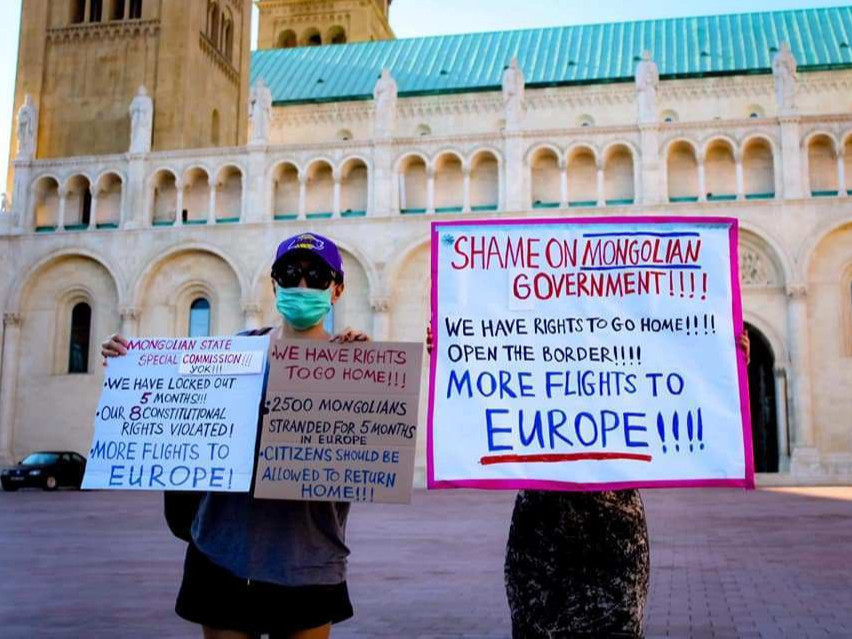 MONGOLIAN STATE
SPECIAL COMMISSION!!!
YOK!!!
•WE HAVE LOCKED OUT
5 MONTHS!!!
•OUR 8 CONSTITUTIONAL
RIGHTS VIOLATED!
•MORE FLIGHTS TO
EUROPE!
•WE HAVE RIGHTS
TO GO HOME!!!
•2500 MONGOLIANS
STRANDED FOR 5 MONTHS
IN EUROPE
•CITIZENS SHOULD BE
ALLOWED TO RETURN
HOME!!!
*SHAME ON MONGOLIAN
GOVERNMENT!!!!
WE HAVE RIGHTS TO GO HOME!!!!
OPEN THE BORDER!!!!
MORE FLIGHTS TO
EUROPE!!!!